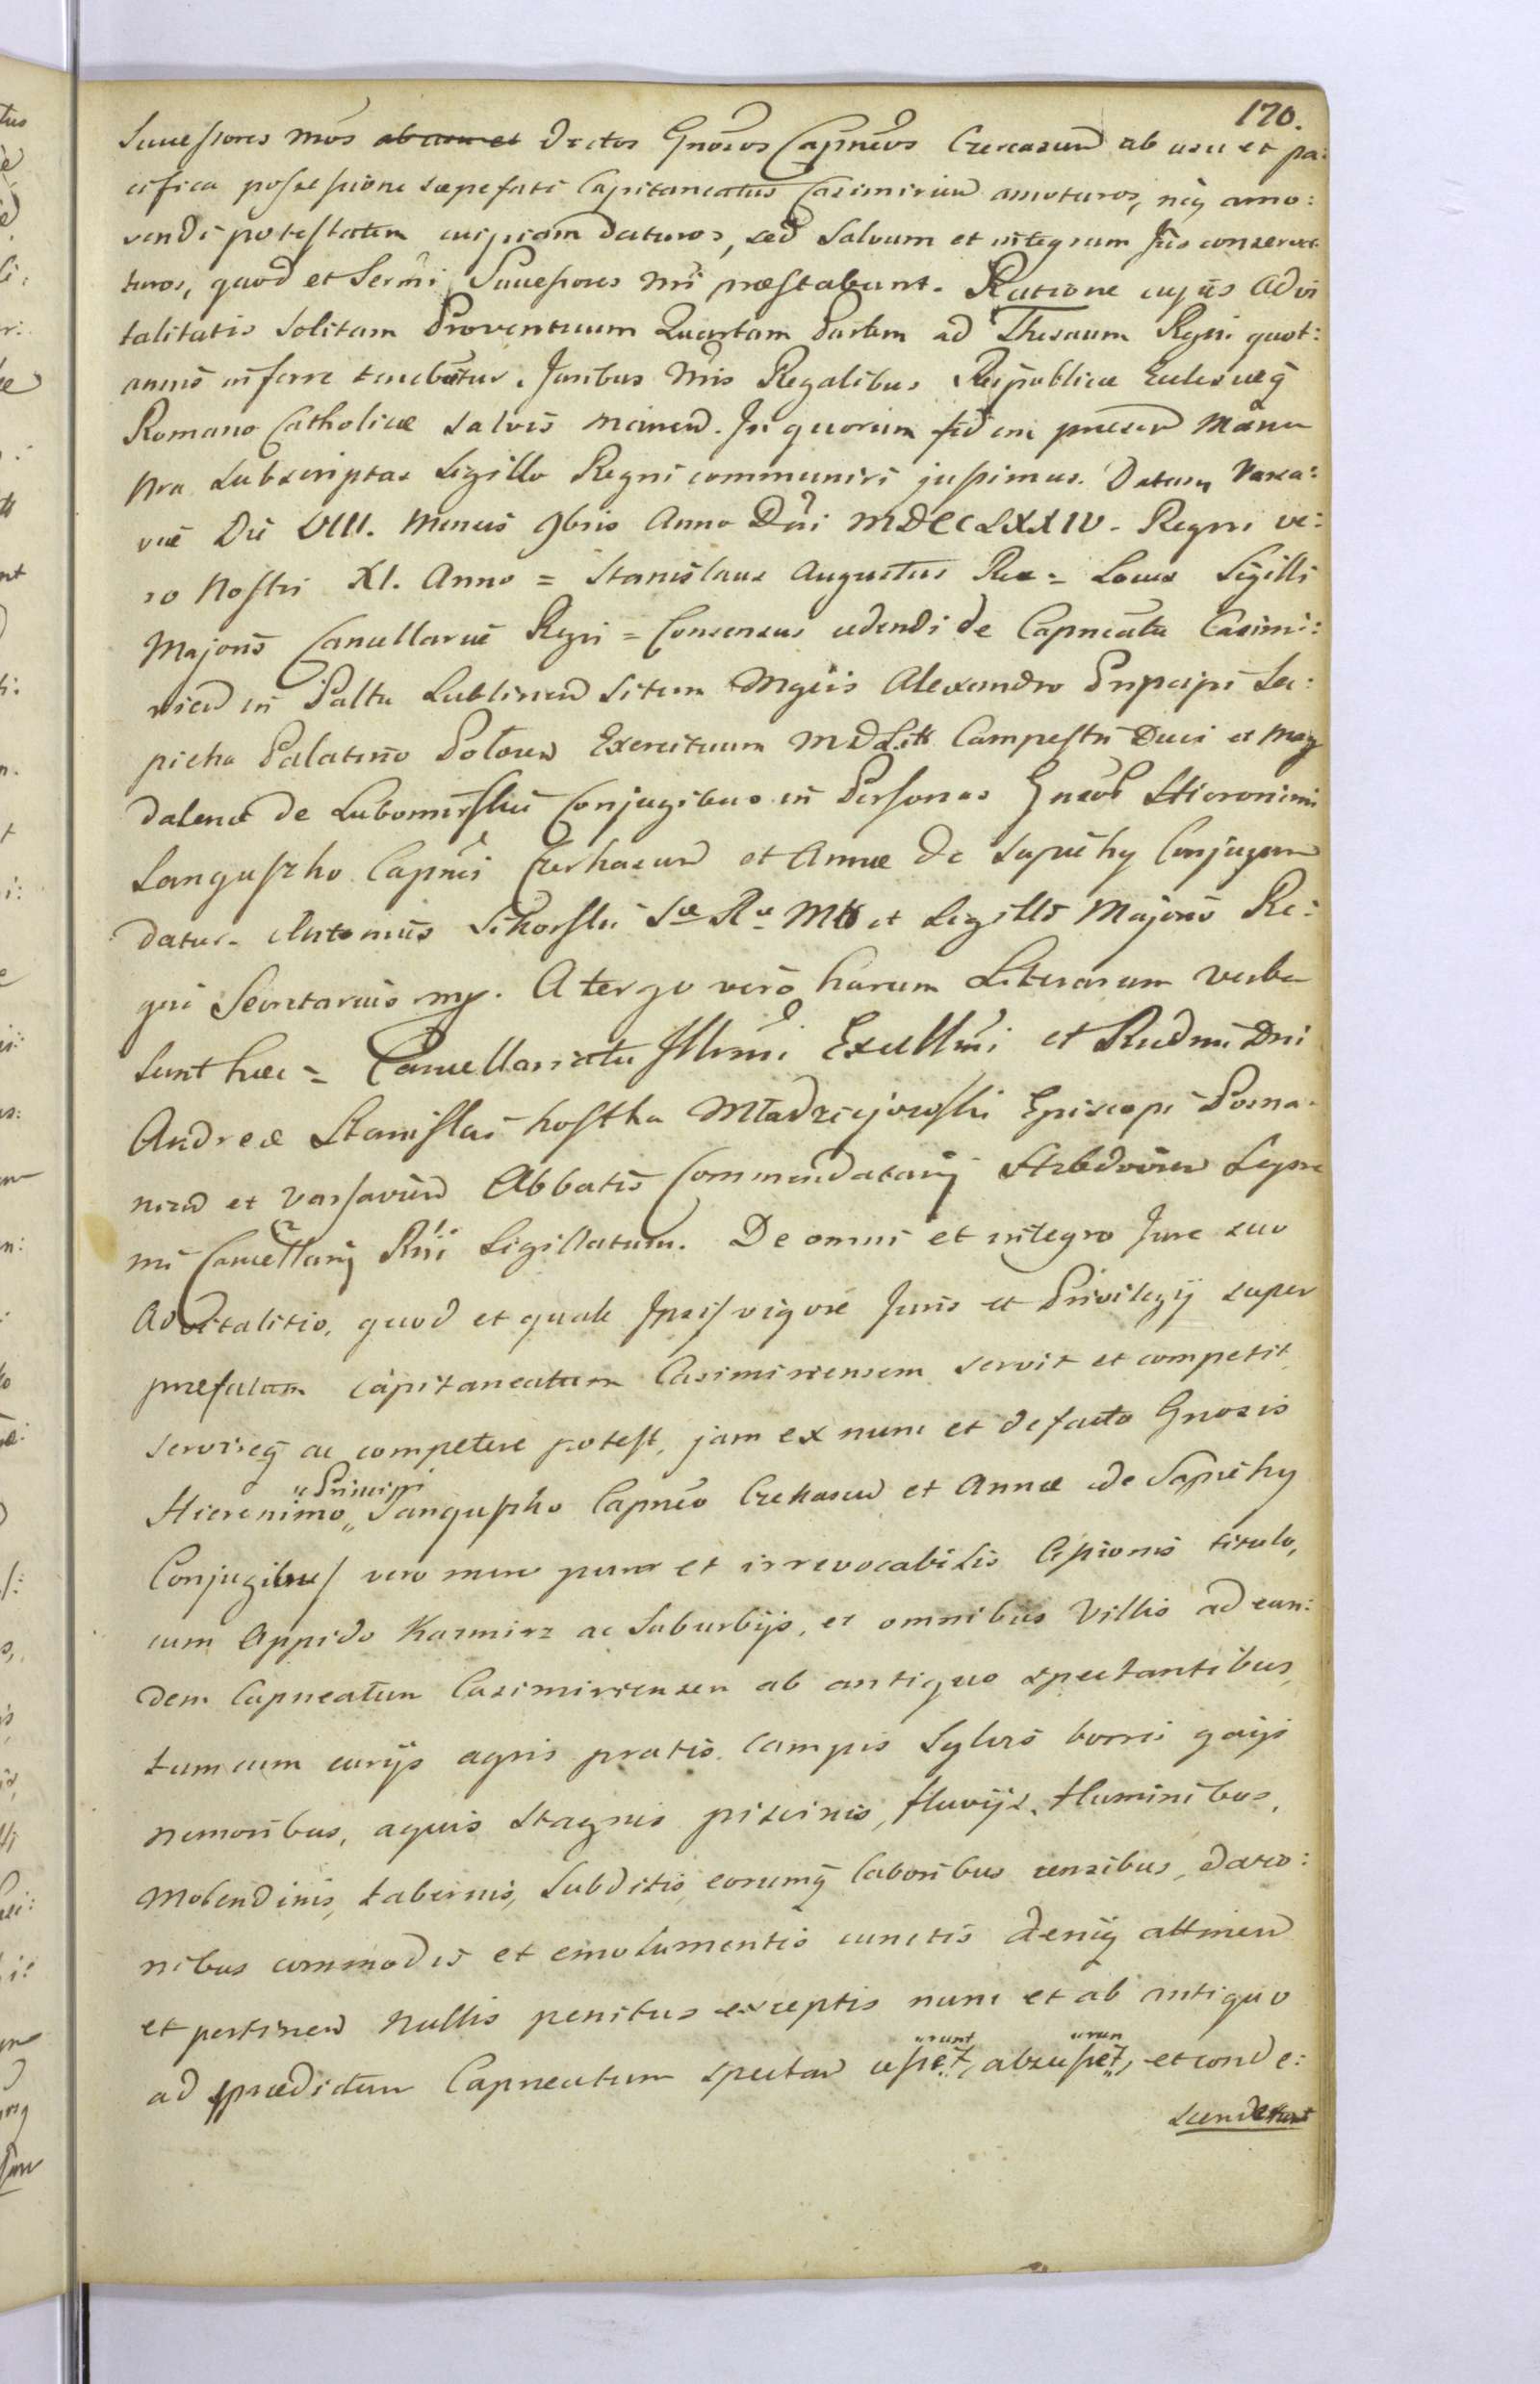 170.
Successores nros ab usu et dictos Gnosos Capneos Czercasien ab usu et pa:
cifica possessione saepefati Capitaneatus Casimirien amoturos, neq amo:
vendi potestatem cuipiam daturos, sed salvum et integrum Jus conserva
turos, quod et Sermi Successores nri praestabunt. Ratione cujus advi
talitatis solitam Proventuum Quartam Partem ad Thesaurum Regni quot:
annis inferre tenebitur. Juribus nris Regalibus Reipublicae Eclesiaeq
Romano Catholicae salvis manen. In quorum fidem presen manu
nra subscriptas Sigillo Regni communiri jussimus. Datum Varsa:
viae Die VIII. Mensis 9bris Anno Dni MDCCLXXIV. Regni ve:
ro Nostri XI. Anno = Stanislaus Augustus Rex = Locus Sigilli
Majoris Cancellariae Regni = Consensus cedendi de Capneatu Casimi:
rien in Paltu Lublinen sitem Mgcis Alexandro Principi Sa:
pieha Palatino Polocen Exercituum MDLitt Campestri Duci et Mag
dalenae de Lubomirskie Conjugibus in Personas Gnsos Hieronimi
Sanguszko Capnei Czerkasien et Annae de Sapiehy Conjugum
datur. Antonius Sikorski Sae Rae Mtis et Sigilli Majoris Re:
gni Secretarius mp. A tergo vero harum Literarum verba
sunt haec = Cancellariatu Illmi Excellmi et Rndmi Dni
Andreae Stanislai Kostka Młodziejowski Episcopi Posna
nien et Varsavien Abbatis Commendatarij Supre
mi Cancellarij Rni Sigillatum. De omni et integro Jure suo
Advitalitio, quod et quale Ipsis vigore Juris et Privilegij super
praefatum Capitaneatum Casimiriensem servit et competit
servireq ac competere potest, jam ex nunc et de facto Gnosis
Hieronimo "Principi" Sanguszko Capneo Czerkasien et Annae de Sapiehy
Conjugibus vero mero puro et irrevocabilis Cessionis titulo,
cum Oppido Kazmirz ac Suburbijs, et omnibus Villis ad eun:
dem Capneatum Casimiriensem ab antiquo spectantibus,
tum cum curijs agris pratis campis Sylvis borris gaijs
nemoribus, aquis stagnis piscinis, fluvijs, fluminibus,
Molendinis, tabernis, Subditis eorumq laboribus censibus, dacio:
nibus commodis et emolumentis cunctis deniq attinen
et pertinen nullis penitus exceptis nunc et ab antiquo
ad praedictum Capneatum spectan cesset "runt, abscesset "run, et conde:
scenderunt